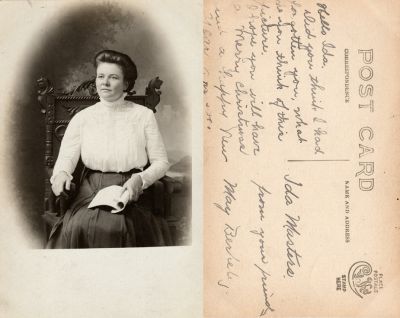 Hello Ida.
Did you think I had
forgotten you, what
do you think of this
picture
I hope you will have
a Merry Christmas
and a Happy New
Ida Masters.
from your friend
May
POST CARD
CORRESPONDENCE
NAME AND ADDRESS
PLACE
POSTAGE
STAMP
HERE